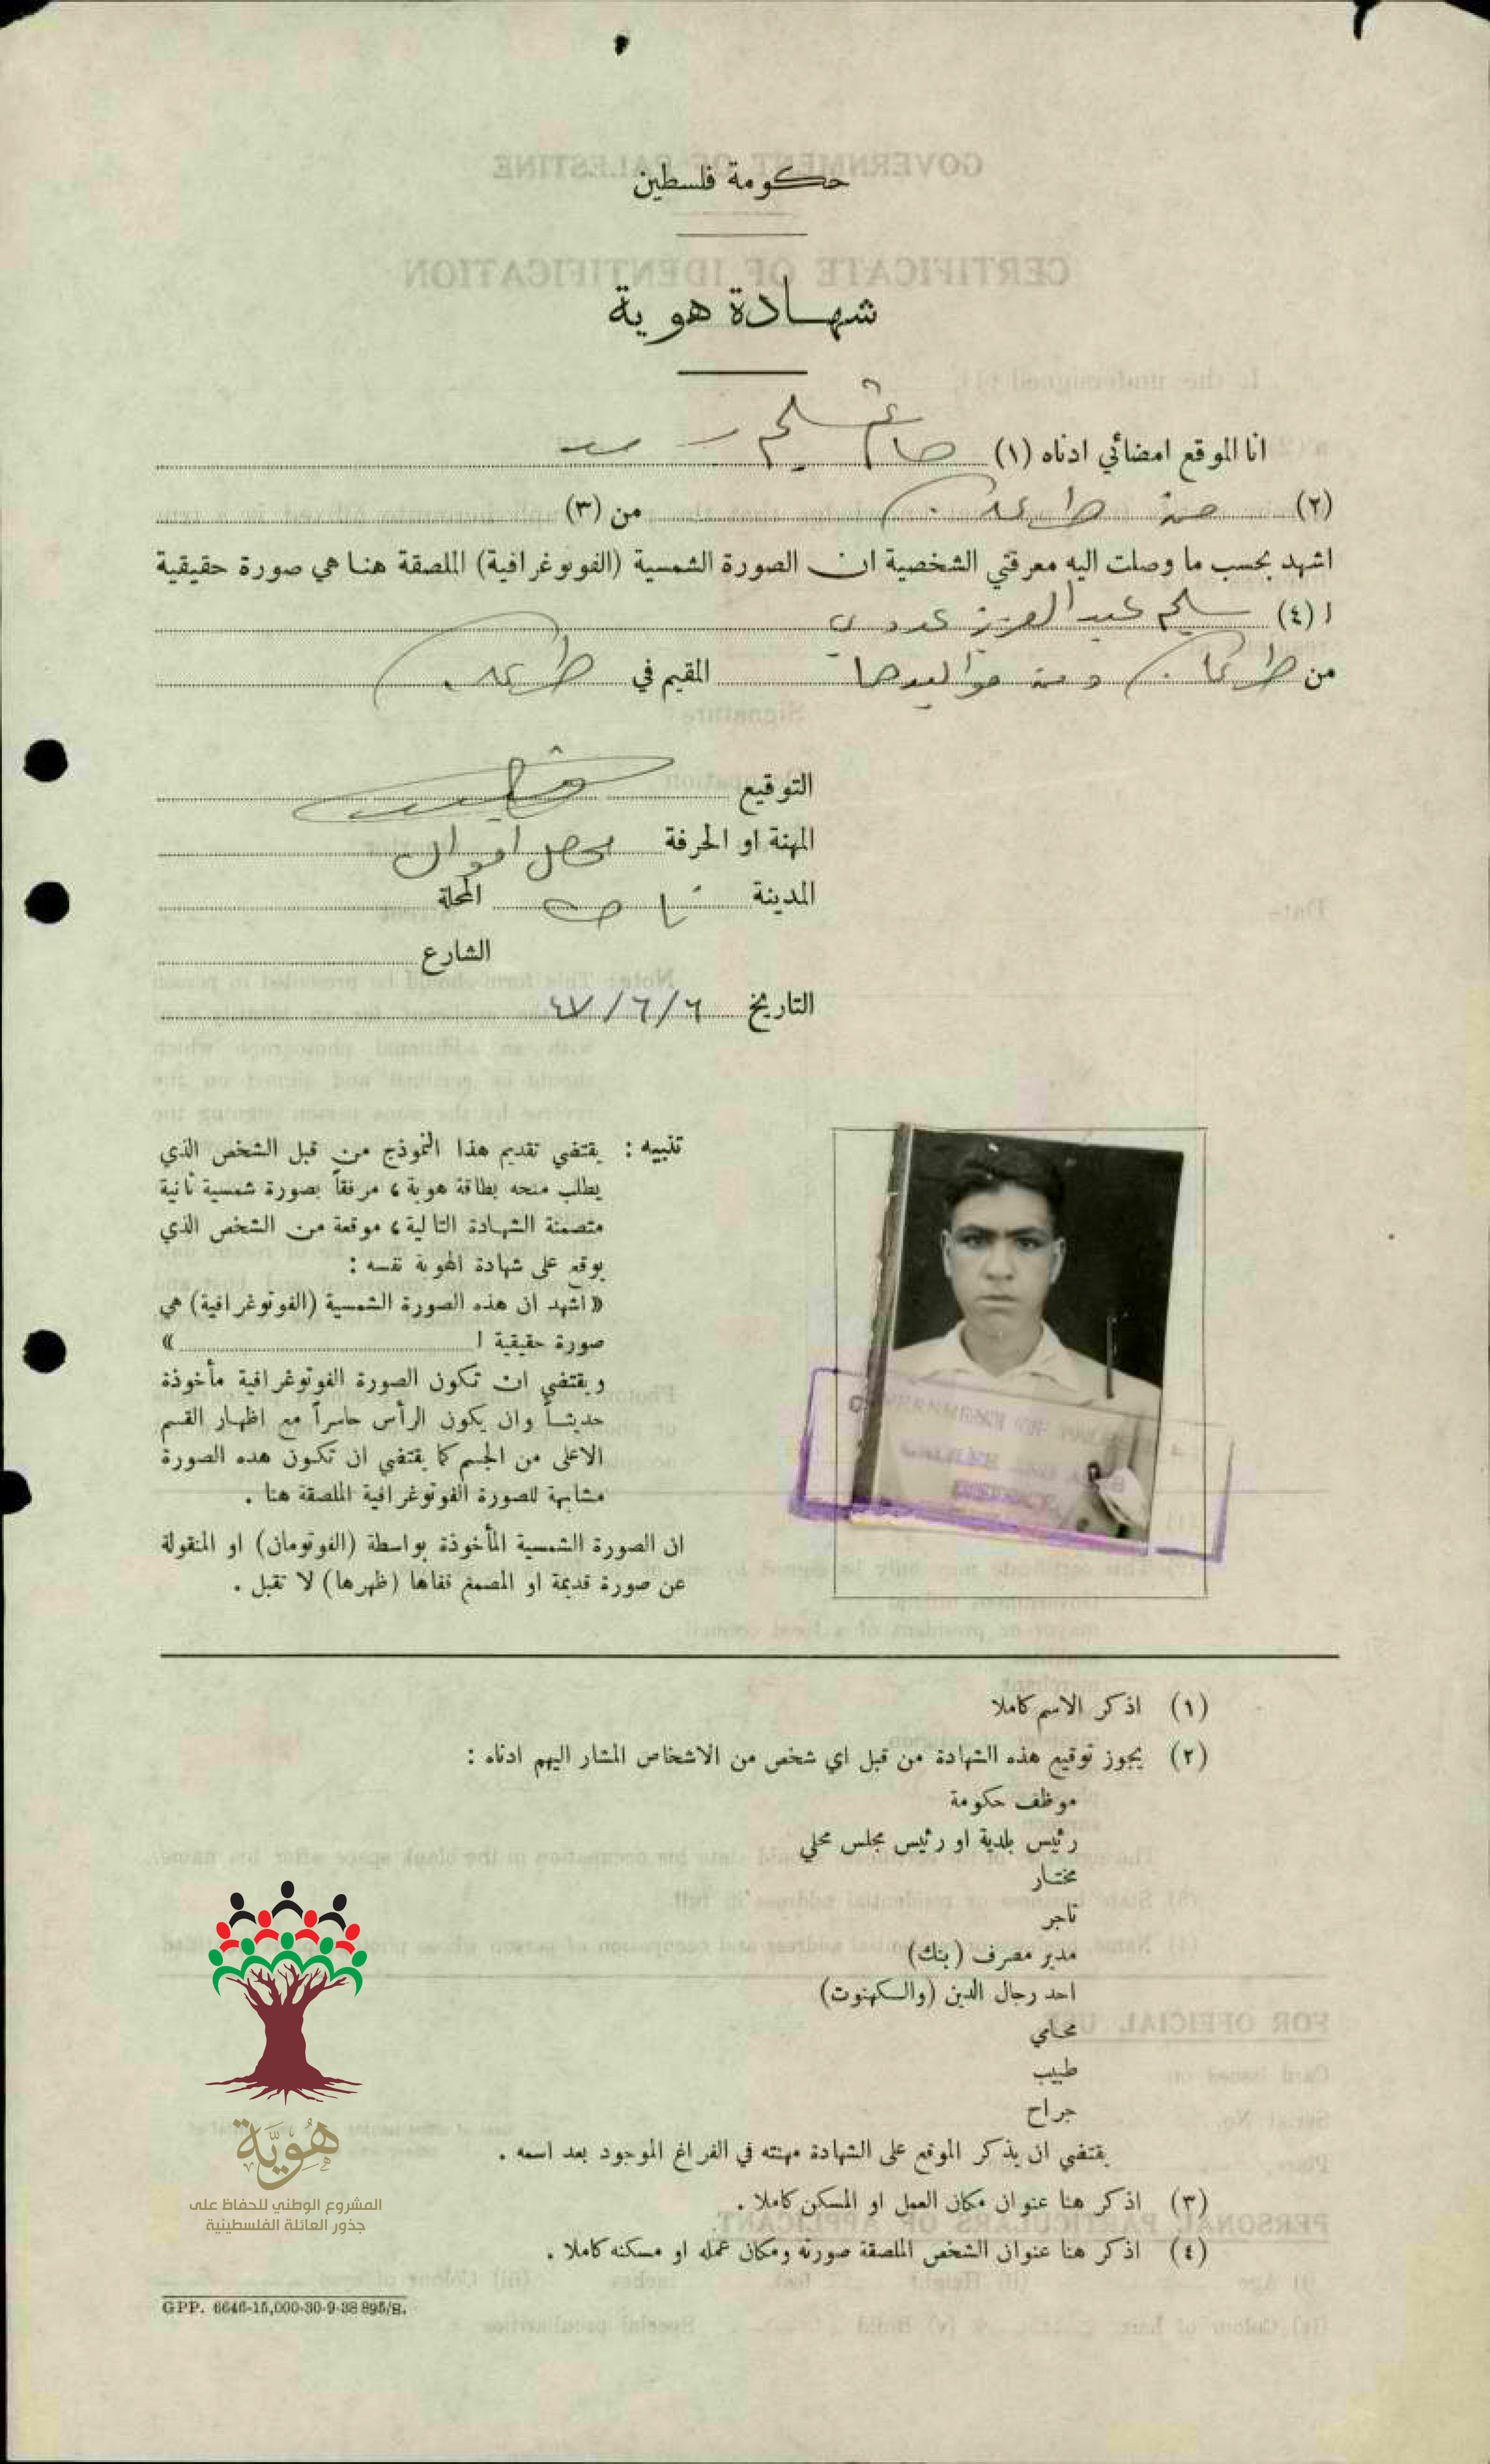 حكومة فلسطين
شهادة هوية
انا الموقع امضائي ادناه (١)
(٢) من (٣)
اشهد بحسب ما وصلت اليه معرفتي الشخصية ان الصورة الشمسية (الفوتوغرافية) الملصقة هنا هي صورة حقيقية
ا (٤) سليم عبد العزيز عدوي
من طرعان ومن مواليدها المقيم في طرعان
التوقيع
المهنة او الحرفة محصل اموال
المدينة المحلة
الشارع
التاريخ ٤٧/٦/٦
تنبيه : يقتضي تقديم هذا النموذج من قبل الشخص الذي
يطلب منحه بطاقة هوية ، مرفقاً بصورة شمسية ثانية
متضمنة الشهادة التالية ، موقعة من الشخص الذي
يوقع على شهادة الهوية نفسه :
« اشهد ان هذه الصورة الشمسية (الفوتوغرافية) هي
صورة حقيقية ا »
ويقتضي ان تكون الصورة الفوتوغرافية مأخوذة
حديثاً وان يكون الرأس حاسراً مع اظهار القسم
الاعلى من الجسم كما يقتضي ان تكون هذه الصورة
مشابهة للصورة الفوتوغرافية الملصقة هنا .
ان الصورة الشمسية المأخوذة بواسطة (الفوتومان) او المنقولة
عن صورة قديمة او المصمغ قفاها (ظهرها) لا تقبل .
(١) اذكر الاسم كاملا
(٢) يجوز توقيع هذه الشهادة من قبل اي شخص من الاشخاص المشار اليهم ادناه :
موظف حكومة
رئيس بلدية او رئيس مجلس محلي
مختار
تاجر
مدير مصرف (بنك)
احد رجال الدين (والكهنوت)
محامي
طبيب
جراح
يقتضي ان يذكر الموقع على الشهادة مهنته في الفراغ الموجود بعد اسمه .
(٣) اذكر هنا عنوان مكان العمل او المسكن كاملا .
(٤) اذكر هنا عنوان الشخص الملصقة صورته ومكان عمله او مسكنه كاملا .
GPP. 6646-15,000-30-9-38 895/S.
هُوِيَّة
المشروع الوطني للحفاظ على
جذور العائلة الفلسطينية